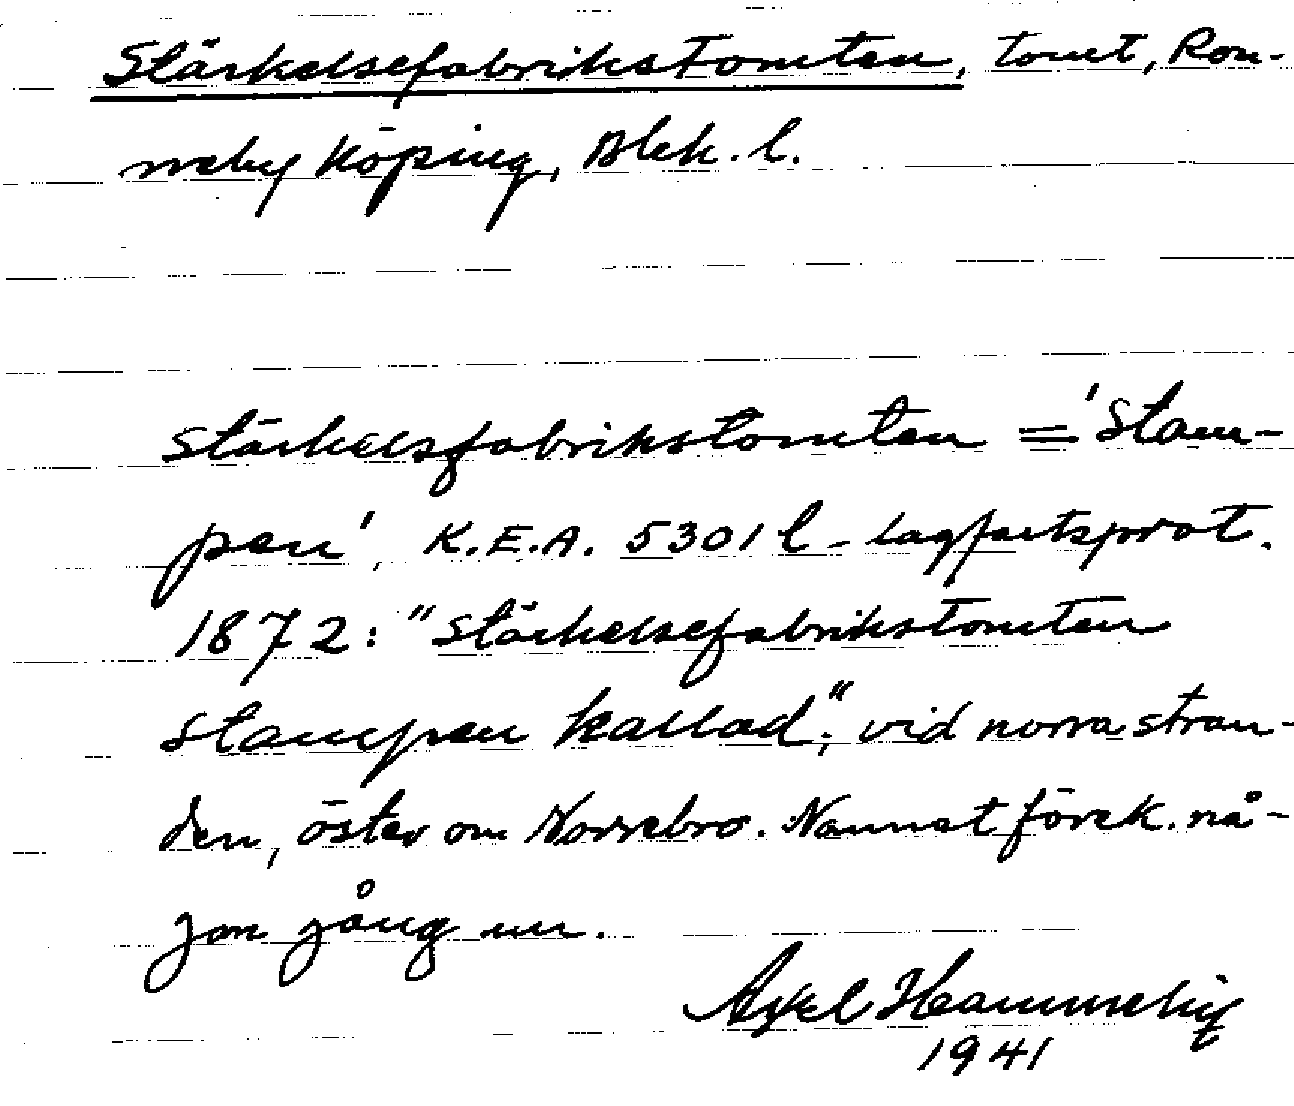 Stärkelsefabrikstomten, tomt, Ron-
neby köping, Blek. l.
Stärkelsfabrikstomten = 'Stam-
pen', K.E.A. 5301 l - lagfartsprot.
1872: "Stärkelsefabrikstomten
Stampen kallad"; vid norra stran-
den, öster om Norrebro. Namnet förek. nå-
gon gång nu.
Axel
1941